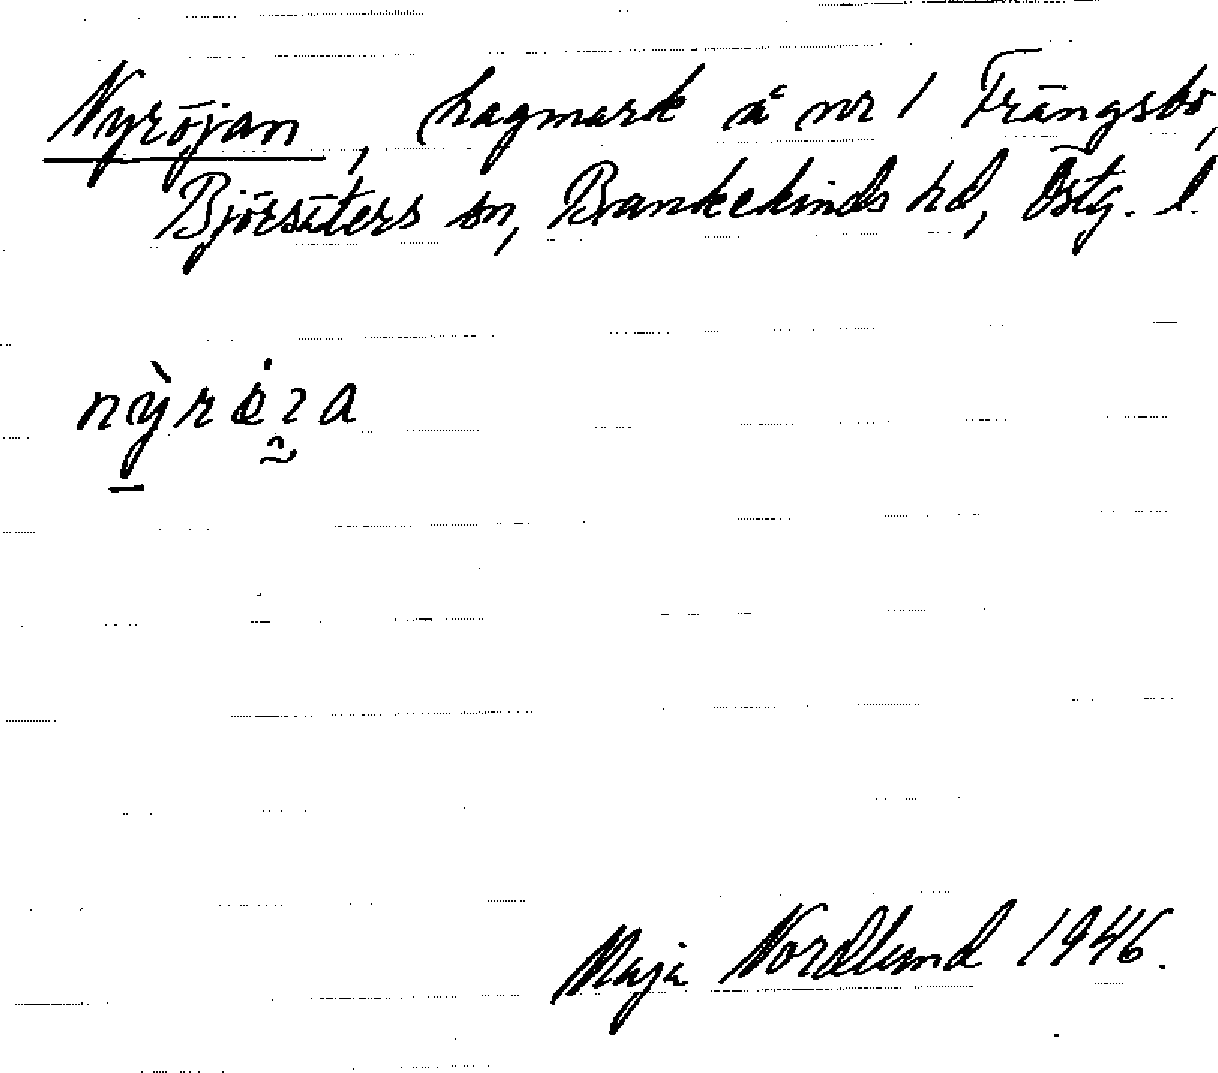 Nyröjan, hagmark å nr 1 Trängsbo,
Björsäters sn, Bankekinds hd, Östg. l.
Maja Nordlund 1946.